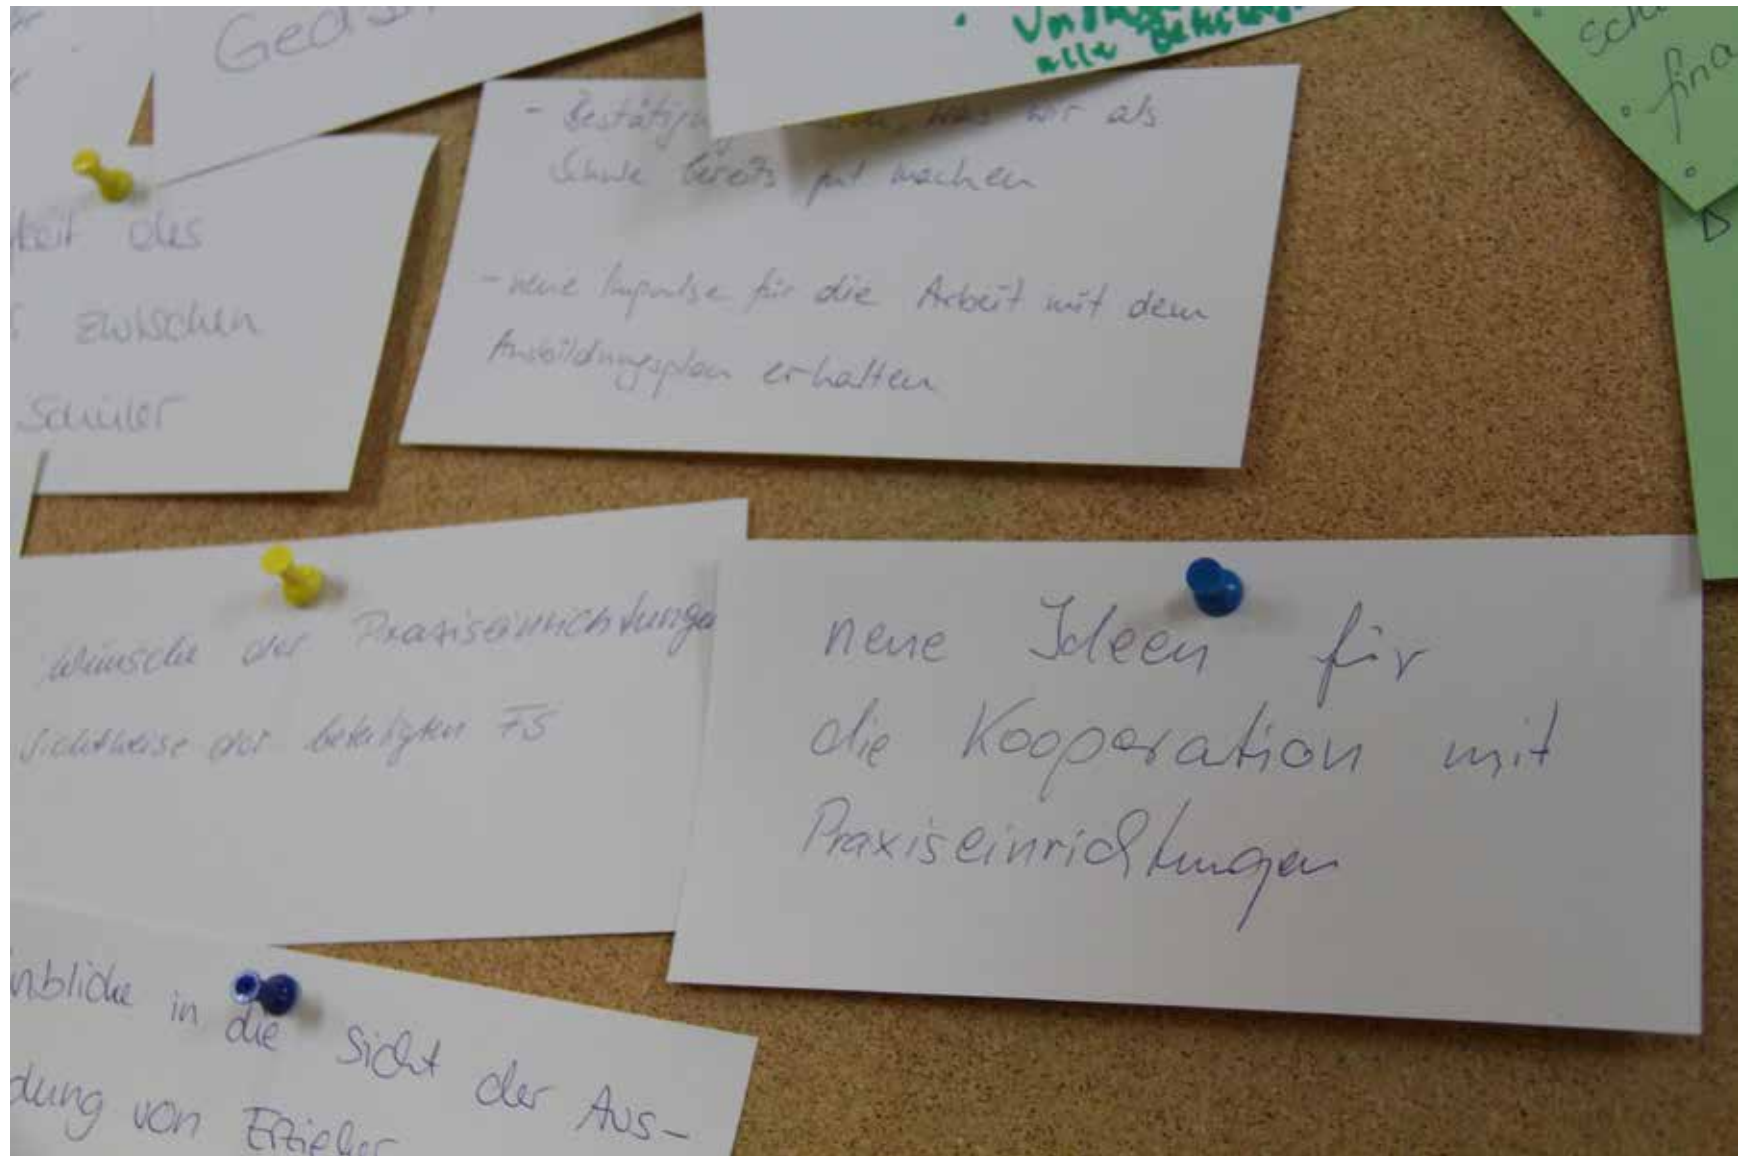 alle
- Bestätigung was wir als
Schule bereits gut machen
- neue Impulse für die Arbeit mit dem
Ausbildungsplan erhalten
des
zwischen
Schüler
Wünsche der Praxiseinrichtungen
Sichtweise der beteiligten FS
neue Ideen für
die Kooperation mit
Praxiseinrichtungen
in die Sicht der Aus-
von Erzieher